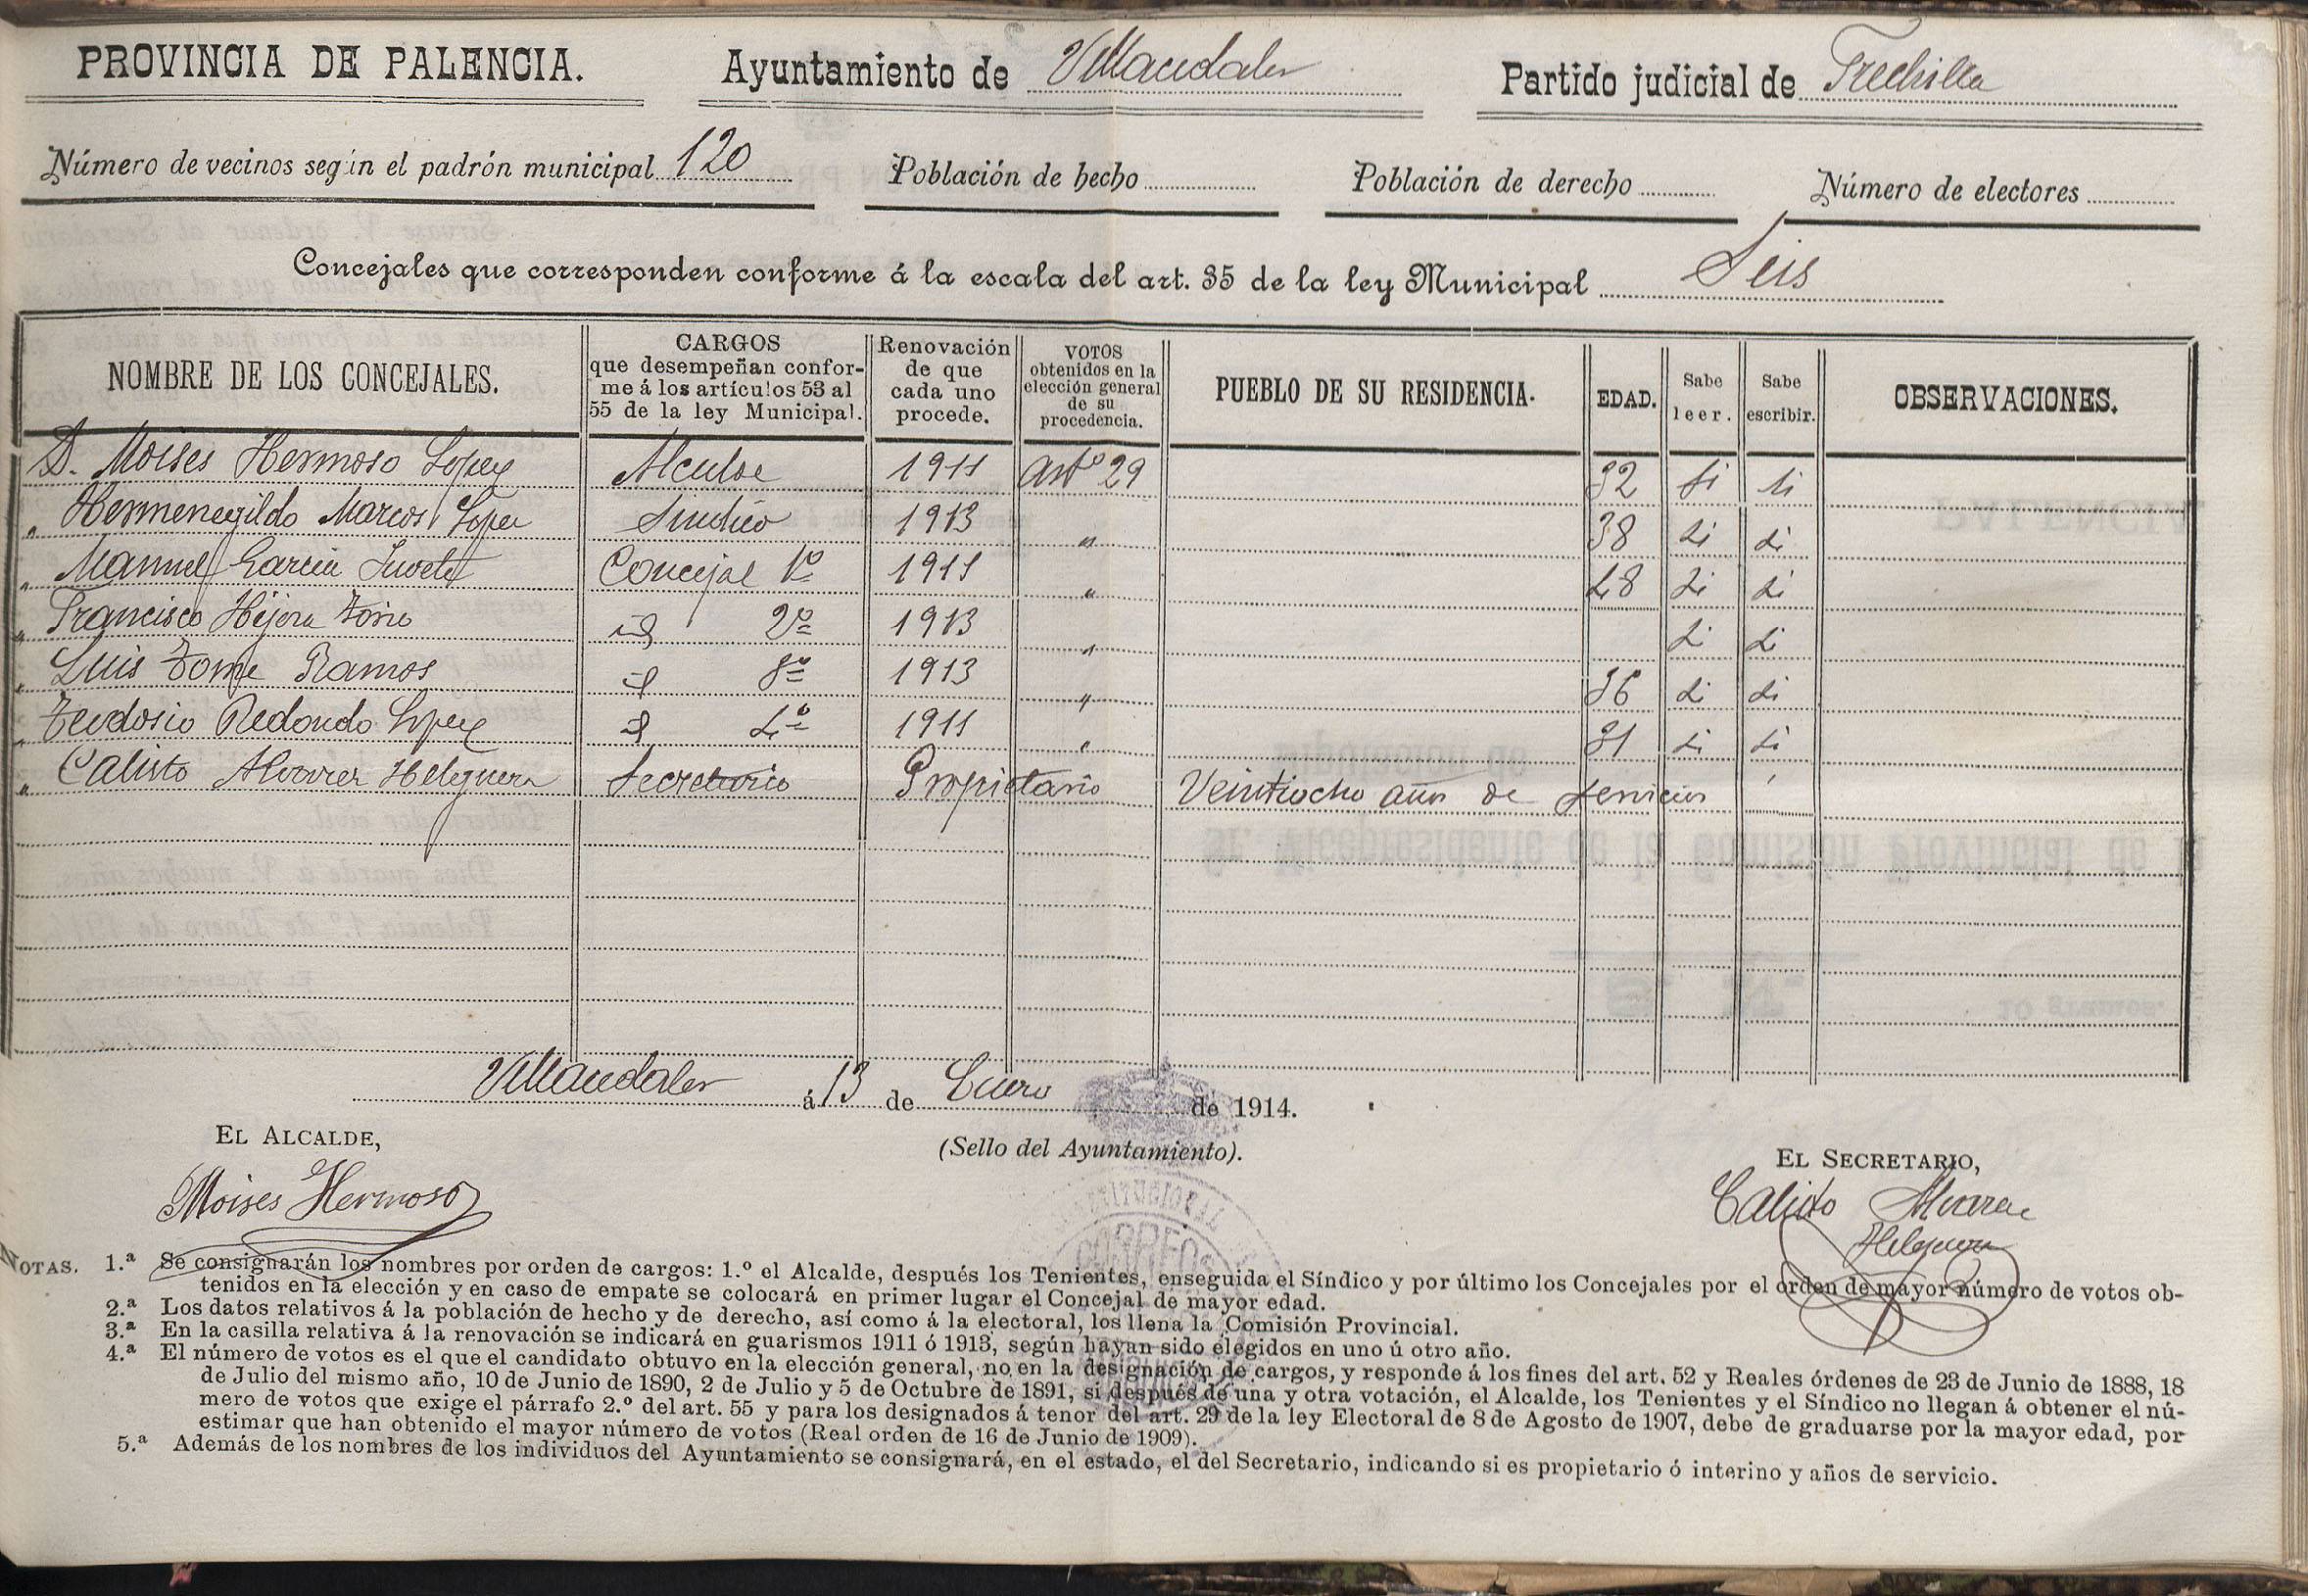 PROVINCIA DE PALENCIA. Ayuntamiento de Villacidaler Partido judicial de Frechilla
Número de vecinos según el padrón municipal 120 Población de hecho Población de derecho Número de electores
Concejales que corresponden conforme á la escala del art. 35 de la ley Municipal Seis
NOMBRE DE LOS CONCEJALES. CARGOS que desempeñan conforme á los artículos 53 al 55 de la ley Municipal. Renovación de que cada uno procede. VOTOS obtenidos en la elección general de su procedencia. PUEBLO DE SU RESIDENCIA. EDAD. Sabe leer. Sabe escribir. OBSERVACIONES.
D. Moises Hermoso Lopez Alcalde 1911 Artº 29 32 si si
" Hermenegildo Marcos Lopez Sindico 1913 " 38 si si
" Manuel Garcia Concejal 1º 1911 " 48 si si
" Francisco Hijera Tome id 2º 1913 " si si
" Luis Tome Ramos id 3º 1913 " 36 si si
" Teodosio Redondo Lopez id 4º 1911 " 31 si si
" Calisto Alvarez Helguera Secretario Propietario Veintiocho años de servicios
Villacidaler á 13 de Enero de 1914.
EL ALCALDE,
(Sello del Ayuntamiento).
EL SECRETARIO,
Moises Hermoso
Calisto Alvarez
Helguera
CORREOS
NOTAS. 1.ª Se consignarán los nombres por orden de cargos: 1.º el Alcalde, después los Tenientes, enseguida el Síndico y por último los Concejales por el orden de mayor número de votos ob-
tenidos en la elección y en caso de empate se colocará en primer lugar el Concejal de mayor edad.
2.ª Los datos relativos á la población de hecho y de derecho, así como á la electoral, los llena la Comisión Provincial.
3.ª En la casilla relativa á la renovación se indicará en guarismos 1911 ó 1913, según hayan sido elegidos en uno ú otro año.
4.ª El número de votos es el que el candidato obtuvo en la elección general, no en la designación de cargos, y responde á los fines del art. 52 y Reales órdenes de 23 de Junio de 1888, 18
de Julio del mismo año, 10 de Junio de 1890, 2 de Julio y 5 de Octubre de 1891, si después de una y otra votación, el Alcalde, los Tenientes y el Síndico no llegan á obtener el nú-
mero de votos que exige el párrafo 2.º del art. 55 y para los designados á tenor del art. 29 de la ley Electoral de 8 de Agosto de 1907, debe de graduarse por la mayor edad, por
estimar que han obtenido el mayor número de votos (Real orden de 16 de Junio de 1909).
5.ª Además de los nombres de los individuos del Ayuntamiento se consignará, en el estado, el del Secretario, indicando si es propietario ó interino y años de servicio.